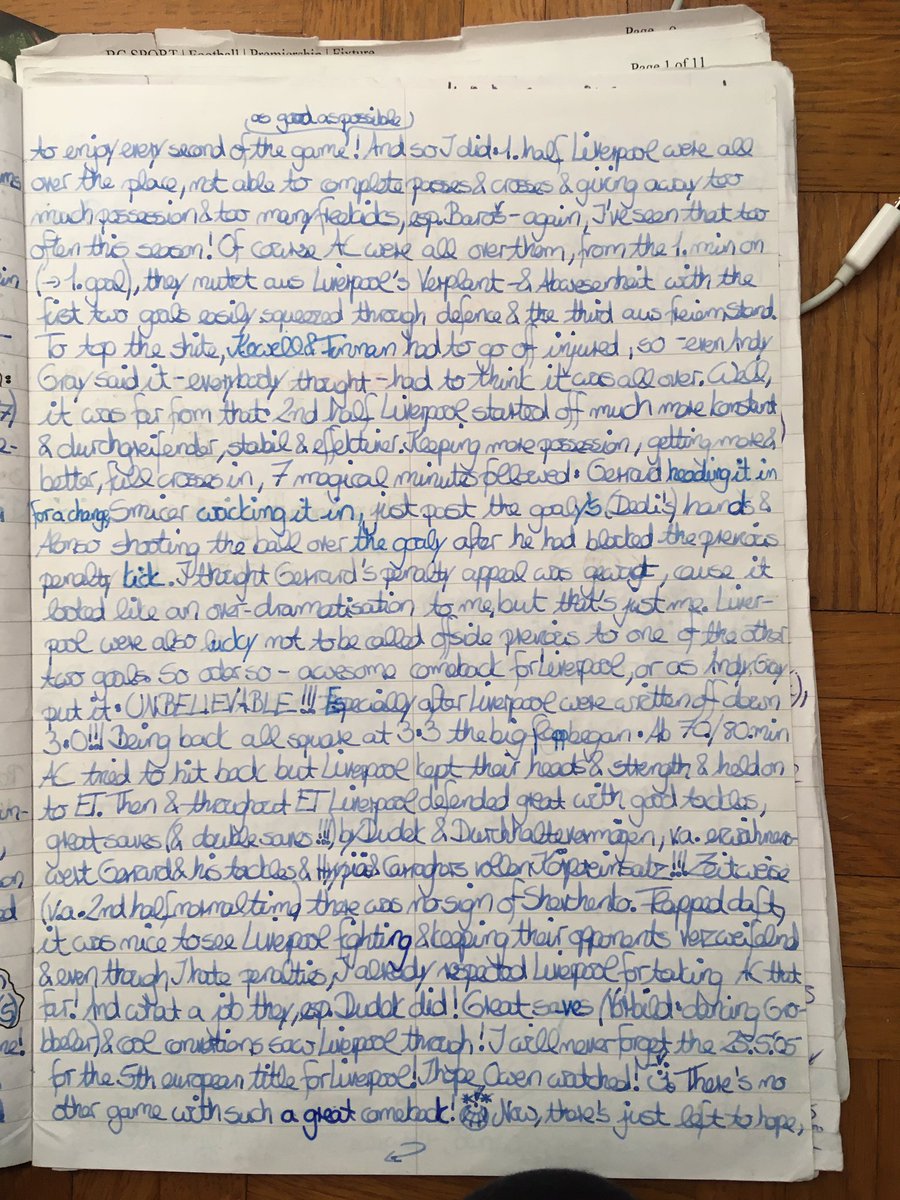 BC SPORT | Football | Premiership | Fixture
Page 1 of 11
(as good as possible)
to enjoy every second of the game! And so I did: 1. half Liverpool were all
over the place, not able to complete passes & crosses & giving away too
much possession & too many freekicks, esp. Baroš - again, I've seen that too
often this season! Of course AC were all over them, from the 1. min on
(→ 1. goal), they nutzt aus Liverpool's Verplant- & Abwesenheit with the
first two goals easily squeezed through defence & the third aus freiem Stand.
To top the shite, Kewell & Finnan had to go of injured, so - even Andy
Gray said it - everybody thought - had to think it was all over. Well,
it was far from that: 2nd half Liverpool started off much more konstant
& durchgreifender, stabil & effektiver. Keeping more possession, getting more &
better, full crosses in, 7 magical minutes followed: Gerrard heading it in
for a change, Smicer wacking it in, just past the goaly's (Dedi's) hands &
Alonso shooting the ball over the goaly after he had blocked the previous
penalty kick. I thought Gerrard's penalty appeal was gewagt, cause it
looked like an over-dramatisation to me, but that's just me. Liver-
pool were also lucky not to be called offside previous to one of the other
two goals. So oder so - awesome comeback for Liverpool, or as Andy Gray
put it: UNBELIEVABLE!!! Especially after Liverpool were written off down
3:0!!! Being back all square at 3:3 the big began. Ab 70./80. min
AC tried to hit back but Liverpool kept their heads & strength & held on
to ET. Then & throughout ET Liverpool defended great with good tackles,
great saves (& double saves!!!) by Dudek & Durchhaltevermögen, v.a. erwähnens-
wert Gerrard & his tackles & Hyypiä & Carraghers vollen Körpereinsatz!!! Zeitweise
(v.a. 2nd half normal time) there was no sign of Shevchenko. daft,
it was nice to see Liverpool fighting & keeping their opponents verzweifelnd
& even though I hate penalties, I already respected Liverpool for taking AC that
far! And what a job they, esp. Dudek did! Great saves (Vorbild: dancing Gro-
bbelar) & cool saw Liverpool through! I will never forget the 25.5.05
for the 5th european title for Liverpool! I hope Owen watched! There's no
other game with such a great comeback! Now, there's just left to hope,